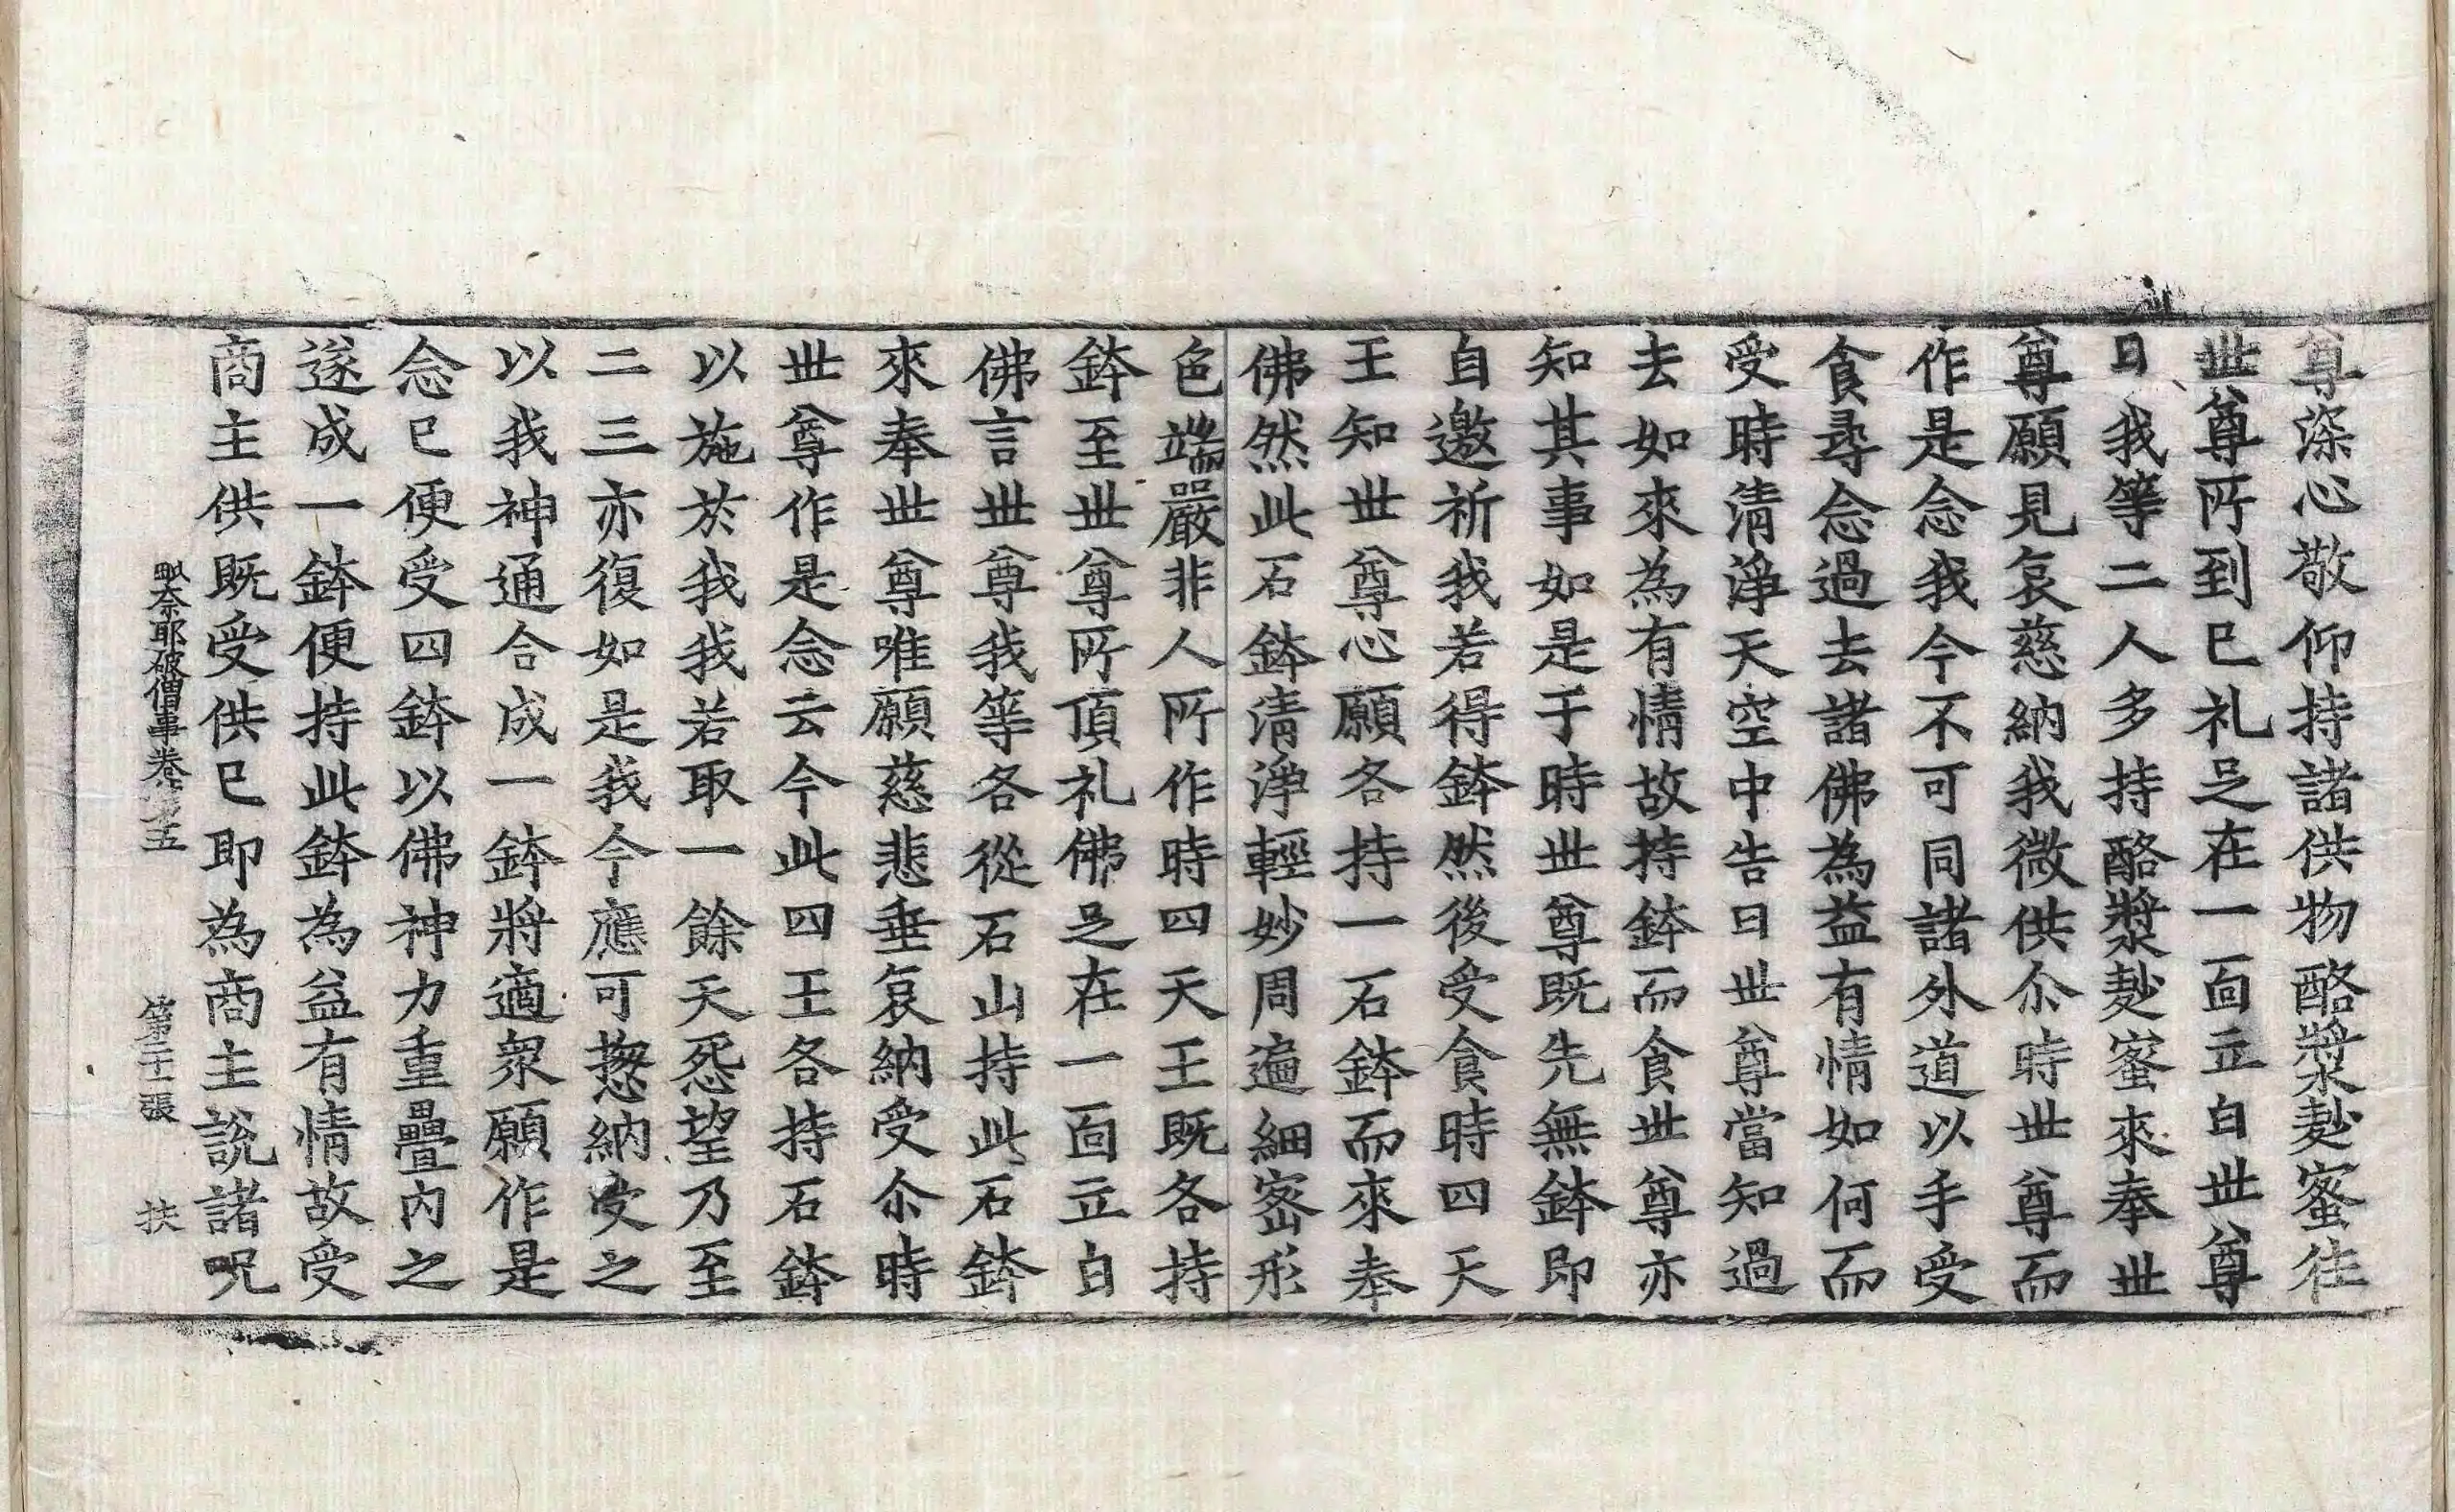 尊深心敬仰持諸供物酪漿麨蜜徃
丗尊所到已礼足在一面立白丗尊
曰我等二人多持酪漿麨蜜來奉丗
尊願見哀慈納我微供尒時丗尊而
作是念我今不可同諸外道以手受
食尋念過去諸佛為益有情如何而
受時清淨天空中告曰丗尊當知過
去如來為有情故持鉢而食丗尊亦
知其事如是于時丗尊旣先無鉢即
自邀祈我若得鉢然後受食時四天
王知丗尊心願各持一石鉢而來奉
佛然此石鉢清淨輕妙周遍細密形
色端嚴非人所作時四天王旣各持
鉢至丗尊所頂礼佛足在一面立白
佛言丗尊我等各從石山持此石鉢
來奉丗尊唯願慈悲垂哀納受尒時
丗尊作是念云今此四王各持石鉢
以施於我我若取一餘天怨望乃至
二三亦復如是我今應可揔納受之
以我神通合成一鉢將適衆願作是
念已便受四鉢以佛神力重疊內之
遂成一鉢便持此鉢為益有情故受
商主供旣受供已即為商主說諸呪
毗奈耶破僧事卷第五　第二十一張　扶